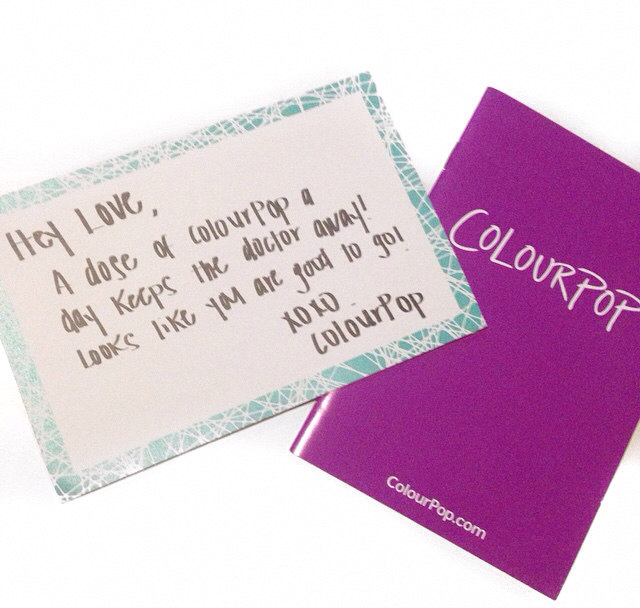 Hey Love,
A dose of ColourPop a
day keeps the doctor away!
Looks like you are good to go!
XOXO -
ColourPop
COLOURPOP
ColourPop.com